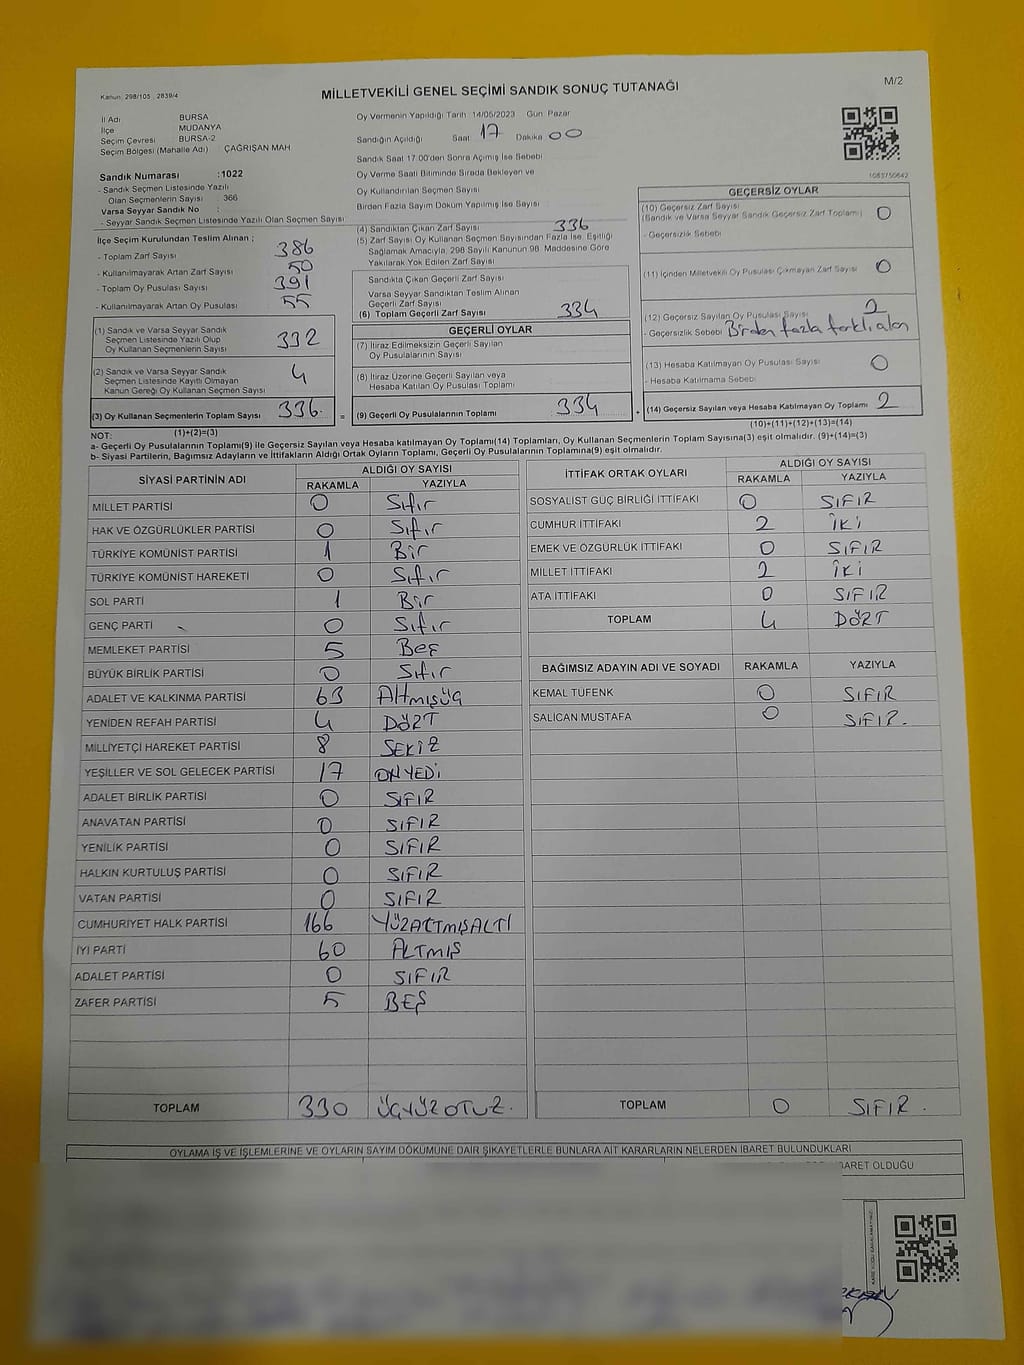 Kanun: 298/105 2839/4
MİLLETVEKİLİ GENEL SEÇİMİ SANDIK SONUÇ TUTANAĞI
M/2
İl Adı BURSA
İlçe MUDANYA
Seçim Çevresi BURSA-2
Seçim Bölgesi (Mahalle Adı) : ÇAĞRIŞAN MAH
Oy Vermenin Yapıldığı Tarih 14/05/2023 Gün: Pazar
Sandığın Açıldığı Saat 17 Dakika 00
Sandık Saat 17.00'den Sonra Açımış İse Sebebi
Oy Verme Saati Bitiminde Sırada Bekleyen ve
Oy Kullandırılan Seçmen Sayısı
Birden Fazla Sayım Döküm Yapılmış İse Sayısı :
1083750642
Sandık Numarası :1022
- Sandık Seçmen Listesinde Yazılı
Olan Seçmenlerin Sayısı : 366
Varsa Seyyar Sandık No :
- Seyyar Sandık Seçmen Listesinde Yazılı Olan Seçmen Sayısı:
İlçe Seçim Kurulundan Teslim Alınan :
- Toplam Zarf Sayısı 386
- Kullanılmayarak Artan Zarf Sayısı 50
- Toplam Oy Pusulası Sayısı 391
- Kullanılmayarak Artan Oy Pusulası 55
(1) Sandık ve Varsa Seyyar Sandık
Seçmen Listesinde Yazılı Olup
Oy Kullanan Seçmenlerin Sayısı 332
(2) Sandık ve Varsa Seyyar Sandık
Seçmen Listesinde Kayıtlı Olmayan
Kanun Gereği Oy Kullanan Seçmen Sayısı 4
(3) Oy Kullanan Seçmenlerin Toplam Sayısı 336.
(1)+(2)=(3)
(4) Sandıktan Çıkan Zarf Sayısı 336
(5) Zarf Sayısı Oy Kullanan Seçmen Sayısından Fazla İse, Eşitliği
Sağlamak Amacıyla, 298 Sayılı Kanunun 98. Maddesine Göre
Yakılarak Yok Edilen Zarf Sayısı
Sandıkta Çıkan Geçerli Zarf Sayısı
Varsa Seyyar Sandıktan Teslim Alınan
Geçerli Zarf Sayısı
(6) Toplam Geçerli Zarf Sayısı 334
GEÇERLİ OYLAR
(7) İtiraz Edilmeksizin Geçerli Sayılan
Oy Pusulalarının Sayısı
(8) İtiraz Üzerine Geçerli Sayılan veya
Hesaba Katılan Oy Pusulası Toplamı
= (9) Geçerli Oy Pusulalarının Toplamı 334 +
GEÇERSİZ OYLAR
(10) Geçersiz Zarf Sayısı 0
(Sandık ve Varsa Seyyar Sandık Geçersiz Zarf Toplamı)
- Geçersizlik Sebebi
(11) İçinden Milletvekili Oy Pusulası Çıkmayan Zarf Sayısı 0
(12) Geçersiz Sayılan Oy Pusulası Sayısı 2
- Geçersizlik Sebebi Birden fazla farklı alan
(13) Hesaba Katılmayan Oy Pusulası Sayısı 0
- Hesaba Katılmama Sebebi
(14) Geçersiz Sayılan veya Hesaba Katılmayan Oy Toplamı 2
(10)+(11)+(12)+(13)=(14)
NOT:
a- Geçerli Oy Pusulalarının Toplamı(9) ile Geçersiz Sayılan veya Hesaba katılmayan Oy Toplamı(14) Toplamları, Oy Kullanan Seçmenlerin Toplam Sayısına(3) eşit olmalıdır. (9)+(14)=(3)
b- Siyasi Partilerin, Bağımsız Adayların ve İttifakların Aldığı Ortak Oyların Toplamı, Geçerli Oy Pusulalarının Toplamına(9) eşit olmalıdır.
SİYASİ PARTİNİN ADI ALDIĞI OY SAYISI
RAKAMLA YAZIYLA
MİLLET PARTİSİ 0 Sıfır
HAK VE ÖZGÜRLÜKLER PARTİSİ 0 Sıfır
TÜRKİYE KOMÜNİST PARTİSİ 1 Bir
TÜRKİYE KOMÜNİST HAREKETİ 0 Sıfır
SOL PARTİ 1 Bir
GENÇ PARTİ 0 Sıfır
MEMLEKET PARTİSİ 5 Beş
BÜYÜK BİRLİK PARTİSİ 0 Sıfır
ADALET VE KALKINMA PARTİSİ 63 Altmışüç
YENİDEN REFAH PARTİSİ 4 DÖRT
MİLLİYETÇİ HAREKET PARTİSİ 8 SEKİZ
YEŞİLLER VE SOL GELECEK PARTİSİ 17 ONYEDİ
ADALET BİRLİK PARTİSİ 0 SIFIR
ANAVATAN PARTİSİ 0 SIFIR
YENİLİK PARTİSİ 0 SIFIR
HALKIN KURTULUŞ PARTİSİ 0 SIFIR
VATAN PARTİSİ 0 SIFIR
CUMHURİYET HALK PARTİSİ 166 YÜZALTMIŞALTI
İYİ PARTİ 60 ALTMIŞ
ADALET PARTİSİ 0 SIFIR
ZAFER PARTİSİ 5 BEŞ
TOPLAM 330 ÜÇYÜZOTUZ.
İTTİFAK ORTAK OYLARI ALDIĞI OY SAYISI
RAKAMLA YAZIYLA
SOSYALİST GÜÇ BİRLİĞİ İTTİFAKI 0 SIFIR
CUMHUR İTTİFAKI 2 İKİ
EMEK VE ÖZGÜRLÜK İTTİFAKI 0 SIFIR
MİLLET İTTİFAKI 2 İKİ
ATA İTTİFAKI 0 SIFIR
TOPLAM 4 DÖRT
BAĞIMSIZ ADAYIN ADI VE SOYADI RAKAMLA YAZIYLA
KEMAL TÜFENK 0 SIFIR
SALİCAN MUSTAFA 0 SIFIR.
TOPLAM 0 SIFIR.
OYLAMA İŞ VE İŞLEMLERİNE VE OYLARIN SAYIM DÖKÜMÜNE DAİR ŞİKAYETLERLE BUNLARA AİT KARARLARIN NELERDEN İBARET BULUNDUKLARI
BARET OLDUĞU